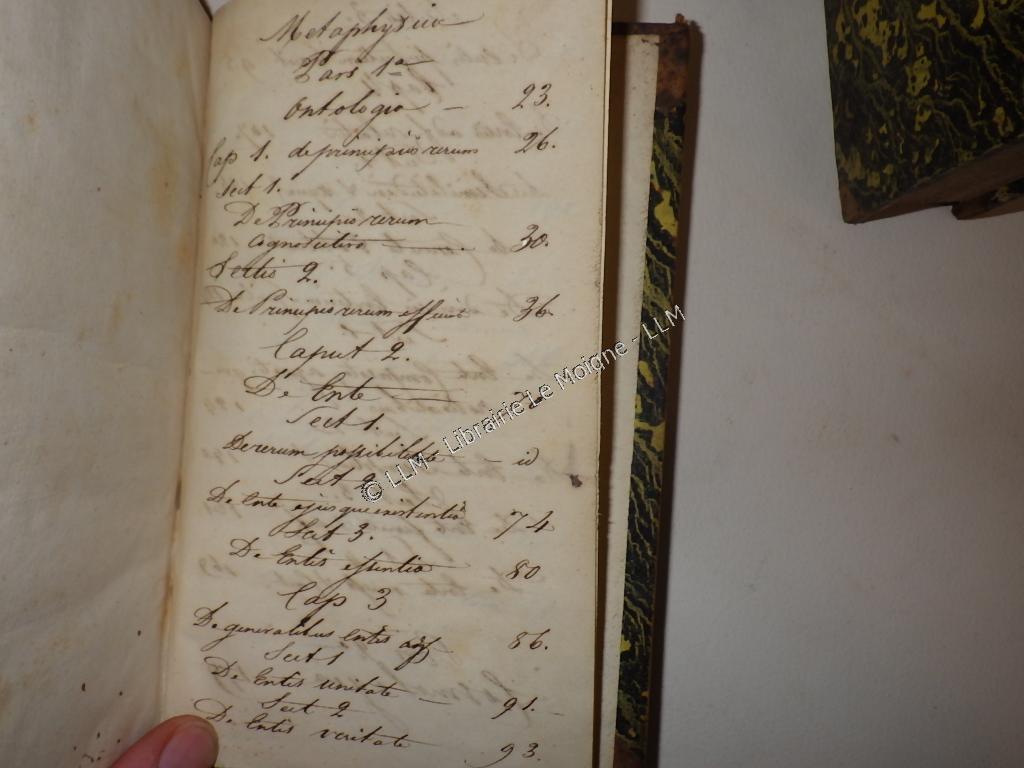 Metaphysica
Pars 1a
Ontologia – 23.
Cap 1. de principiis rerum 26.
Sect 1.
De Principiis rerum
30.
Sectio 2.
De Principiis rerum 36.
Caput 2.
De Ente
Sect 1.
De rerum possibilitate – id
Sect 2
De ente ejusque existentia 74
Sect 3.
De Entis essentia 80
Cap 3
De generalibus entis 86.
Sect 1
De Entis unitate 91.
Sect 2
De Entis veritate 93.
© LLM - Librairie Le Moigne - LLM